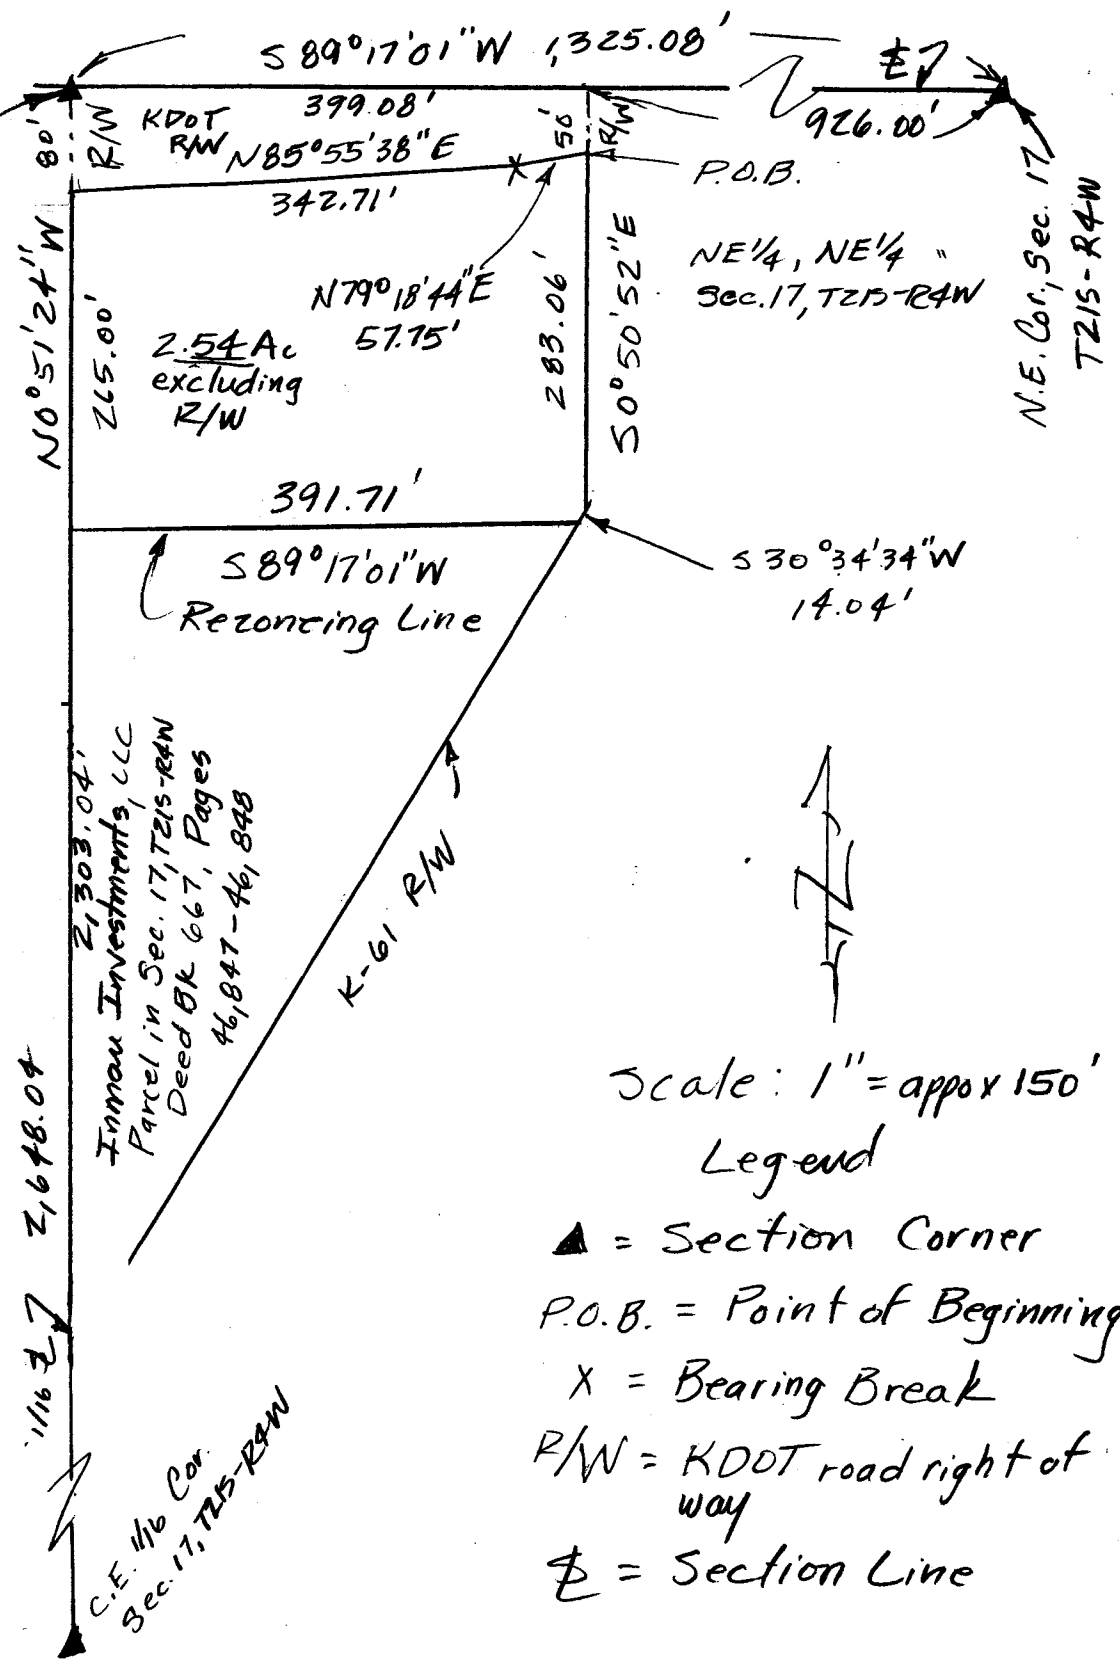 S 89°17'01"W 1,325.08'
399.08'
926.00'
80'
R/W
KDOT
R/W
N85°55'38"E
342.71'
50'
R/W
P.O.B.
N.E. Cor., Sec. 17
T21S-R4W
NE 1/4, NE 1/4 "
Sec. 17, T21S-R4W
N0°51'24"W
265.00'
N79°18'44"E
57.75'
283.06'
S0°50'52"E
2.54 Ac
excluding
R/W
391.71'
S89°17'01"W
Rezoneing Line
S 30°34'34"W
14.04'
2,303.04'
Inman Investments, LLC
Parcel in Sec. 17, T21S-R4W
Deed Bk 667, Pages
46,847-46,848
K-61 R/W
N
2,648.04
1/16
C.E. 1/16 Cor.
Sec. 17, T21S-R4W
Scale: 1"= appox 150'
Legend
▲ = Section Corner
P.O.B. = Point of Beginning
X = Bearing Break
R/W = KDOT road right of
way
= Section Line